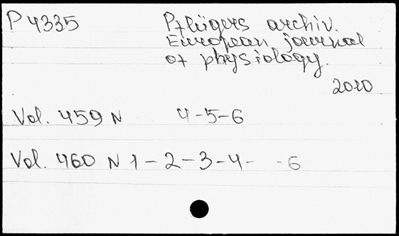 P4335 Pflügers archiv.
European journal
of physiology.
2010
Vol. 459 N 4-5-6
Vol. 460 N 1-2-3-4- -6